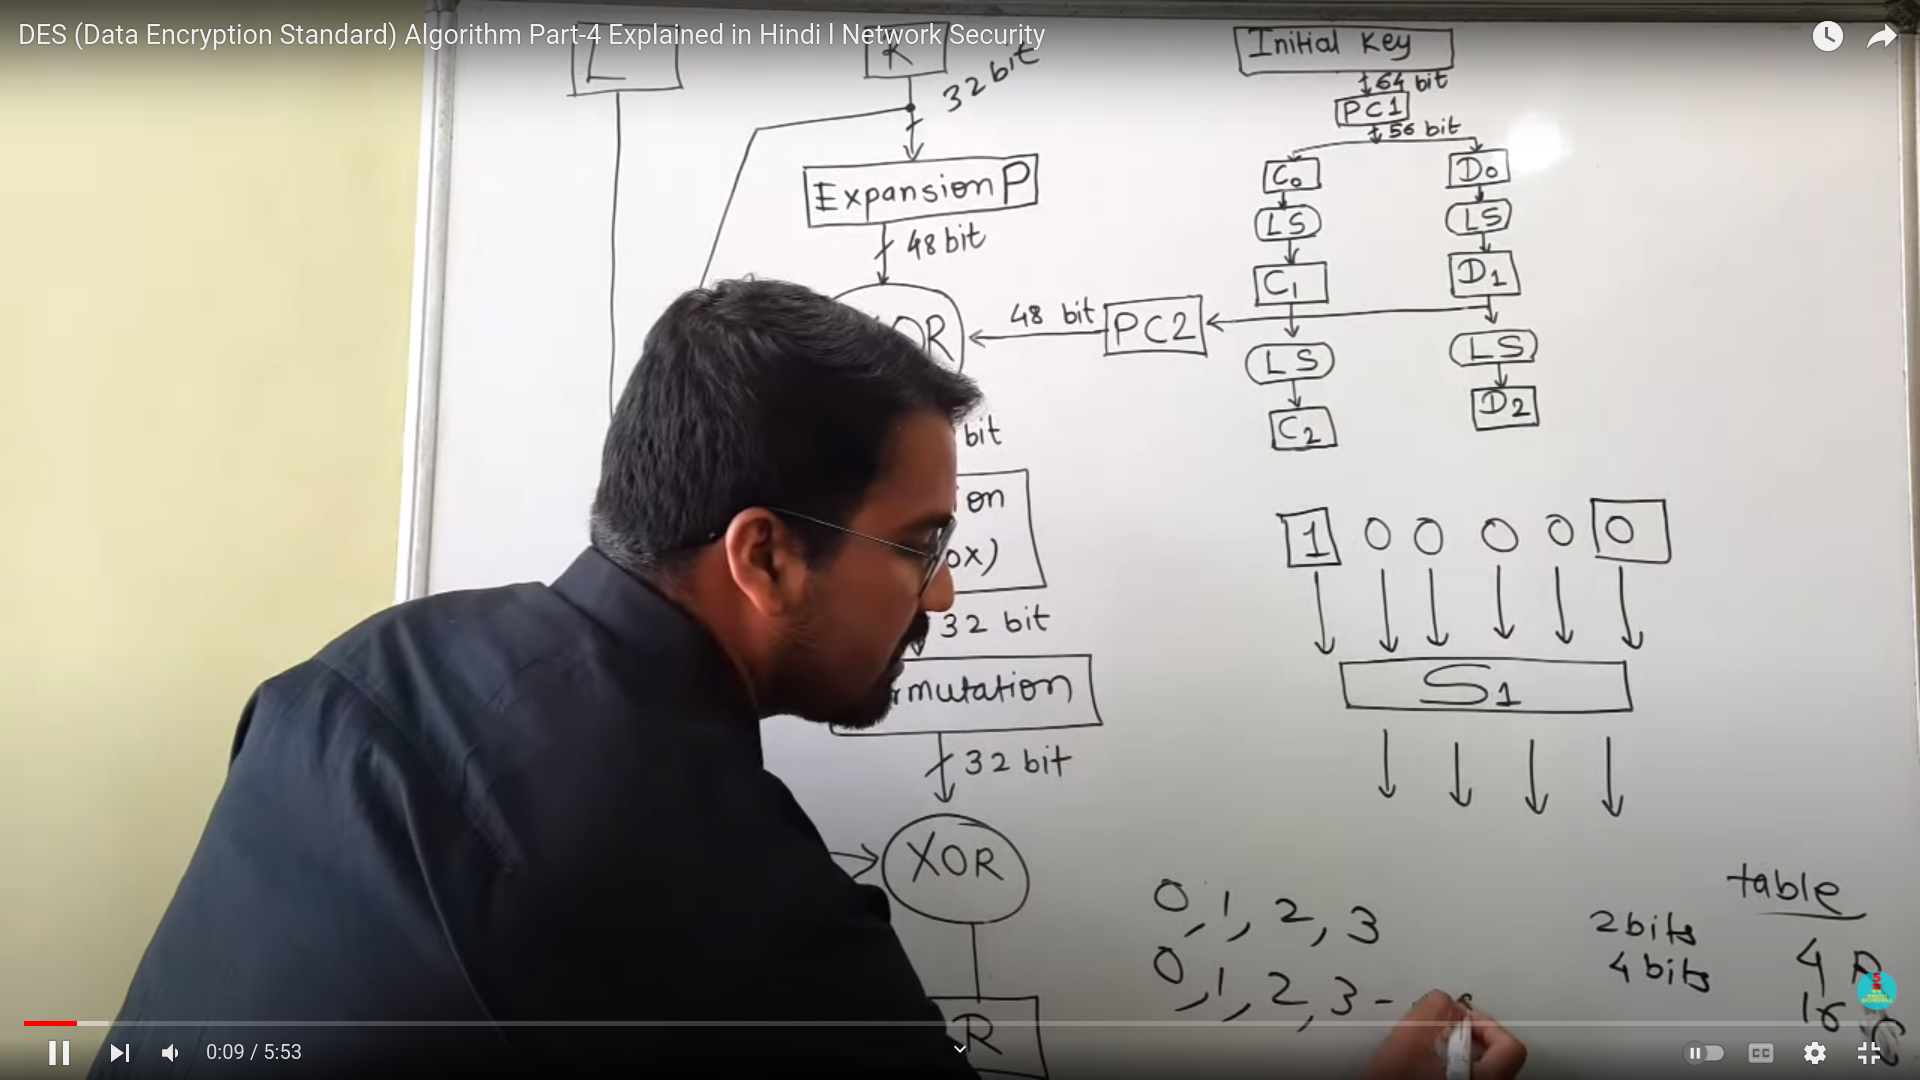 DES (Data Encryption Standard) Algorithm Part-4 Explained in Hindi l Network Security
L
R
32 bit
Expansion P
48 bit
OR
48 bit
PC2
bit
on
ox)
32 bit
mutation
32 bit
XOR
R
Initial Key
64 bit
PC1
56 bit
C0 D0
LS LS
C1 D1
LS LS
C2 D2
1 0 0 0 0 0
S1
0, 1, 2, 3
0, 1, 2, 3 -
table
2 bits
4 bits
4 R
16 C
0:09 / 5:53
CC